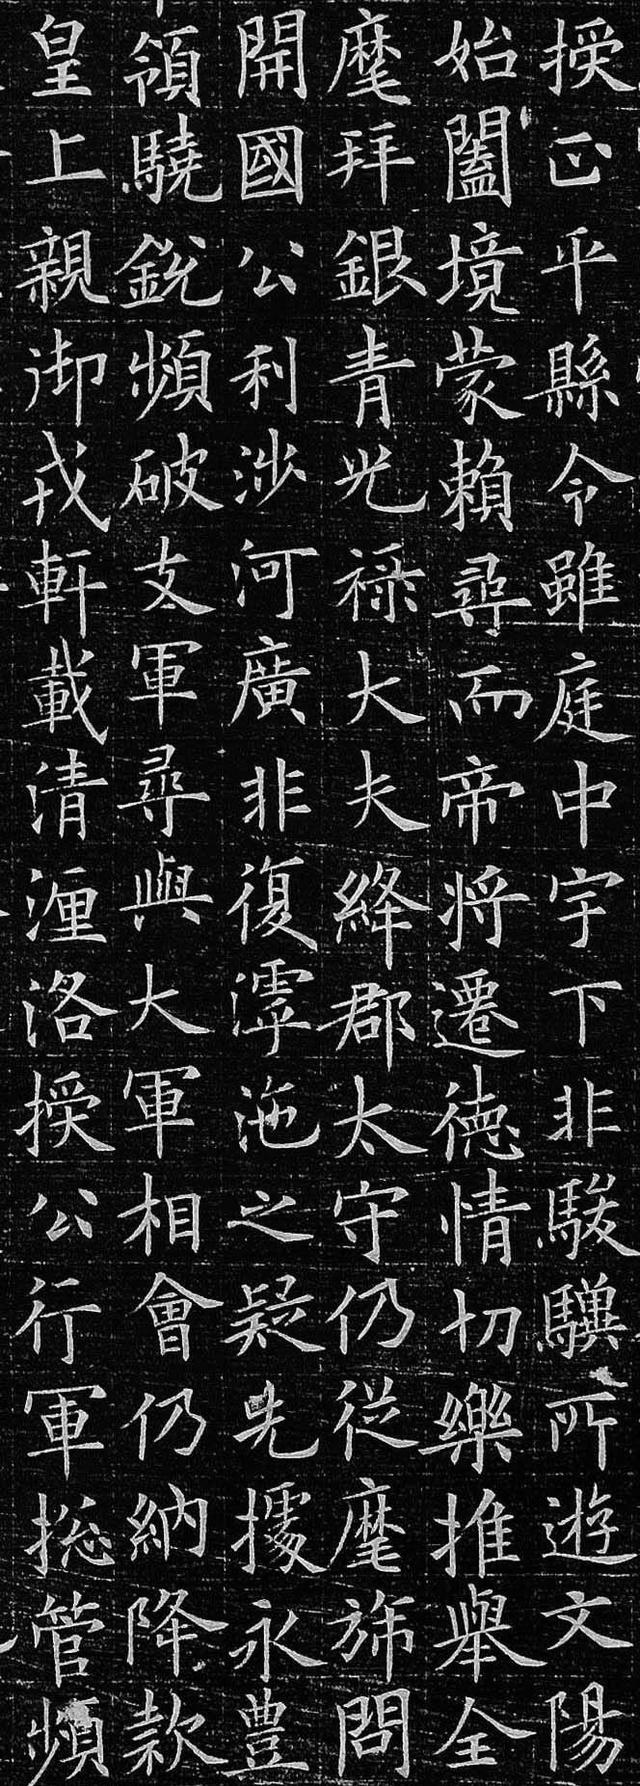 授正平縣令雖庭中宇下非駿驥所遊文陽
始闔境蒙賴尋而帝將遷德情切樂推舉全
麾拜銀青光禄大夫絳郡太守仍從麾旆問
開國公利涉河廣非復滹沲之疑先據永豊
領驍銳頻破支軍尋與大軍相會仍納降款
皇上親御戎軒載清瀍洛授公行軍揔管頻